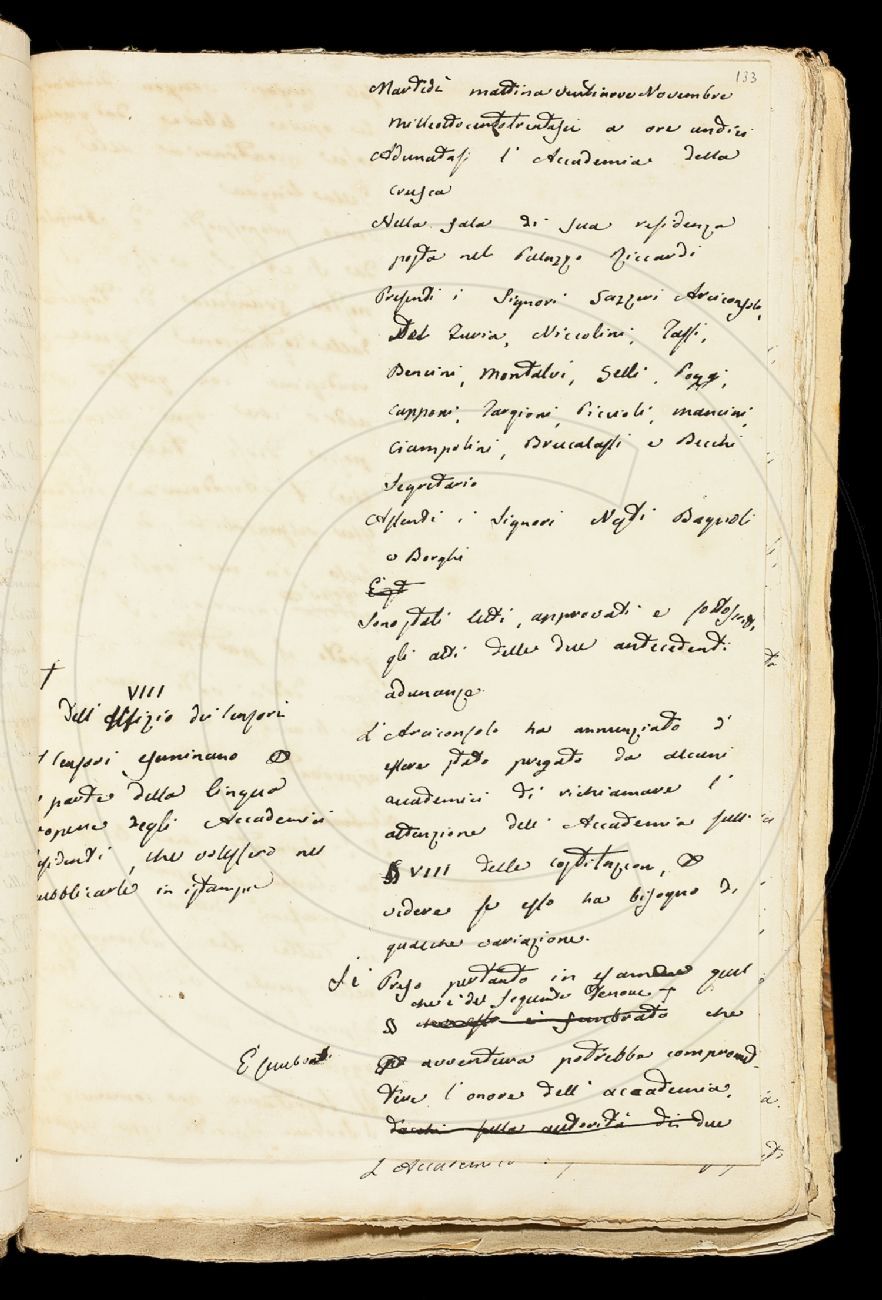 133
Martedì mattina ventinove Novembre
milleottocentotrentasei a ore undici
Adunatasi l'Accademia della
Crusca
Nella sala di sua residenza
posta nel Palazzo Riccardi
Presenti i Signori Gazzeri Arciconsolo,
Del Furia, Niccolini, Tassi,
Bencini, Montalvi, Gelli, Poggi,
Capponi, Targioni, Piccioli, Mancini,
Ciampolini, Brucalassi e Becchi
Segretario
Assenti i Signori Nesti Bagnoli
e Borghi
Sono stati letti, approvati e sottoscritti,
gli atti delle due antecedenti
adunanze.
L'Arciconsolo ha annunziato d'
essere stato pregato da alcuni
accademici di richiamare l'
attenzione dell'Accademia sull
§ VIII delle costituzioni, e
vedere se esso ha bisogno di
qualche variazione.
Si Preso pertanto in esame quel
che è del seguente tenore +
§ che esso è sembrato che
È sembrato
per avventura potrebbe compromet-
tere l'onore dell'accademia,
sulla autorità di due
L'Accademico
+
VIII
Dell'Uffizio dei Censori
I Censori esaminano
parte della lingua
opere degli Accademici
residenti, che volessero
pubblicarle in istampa